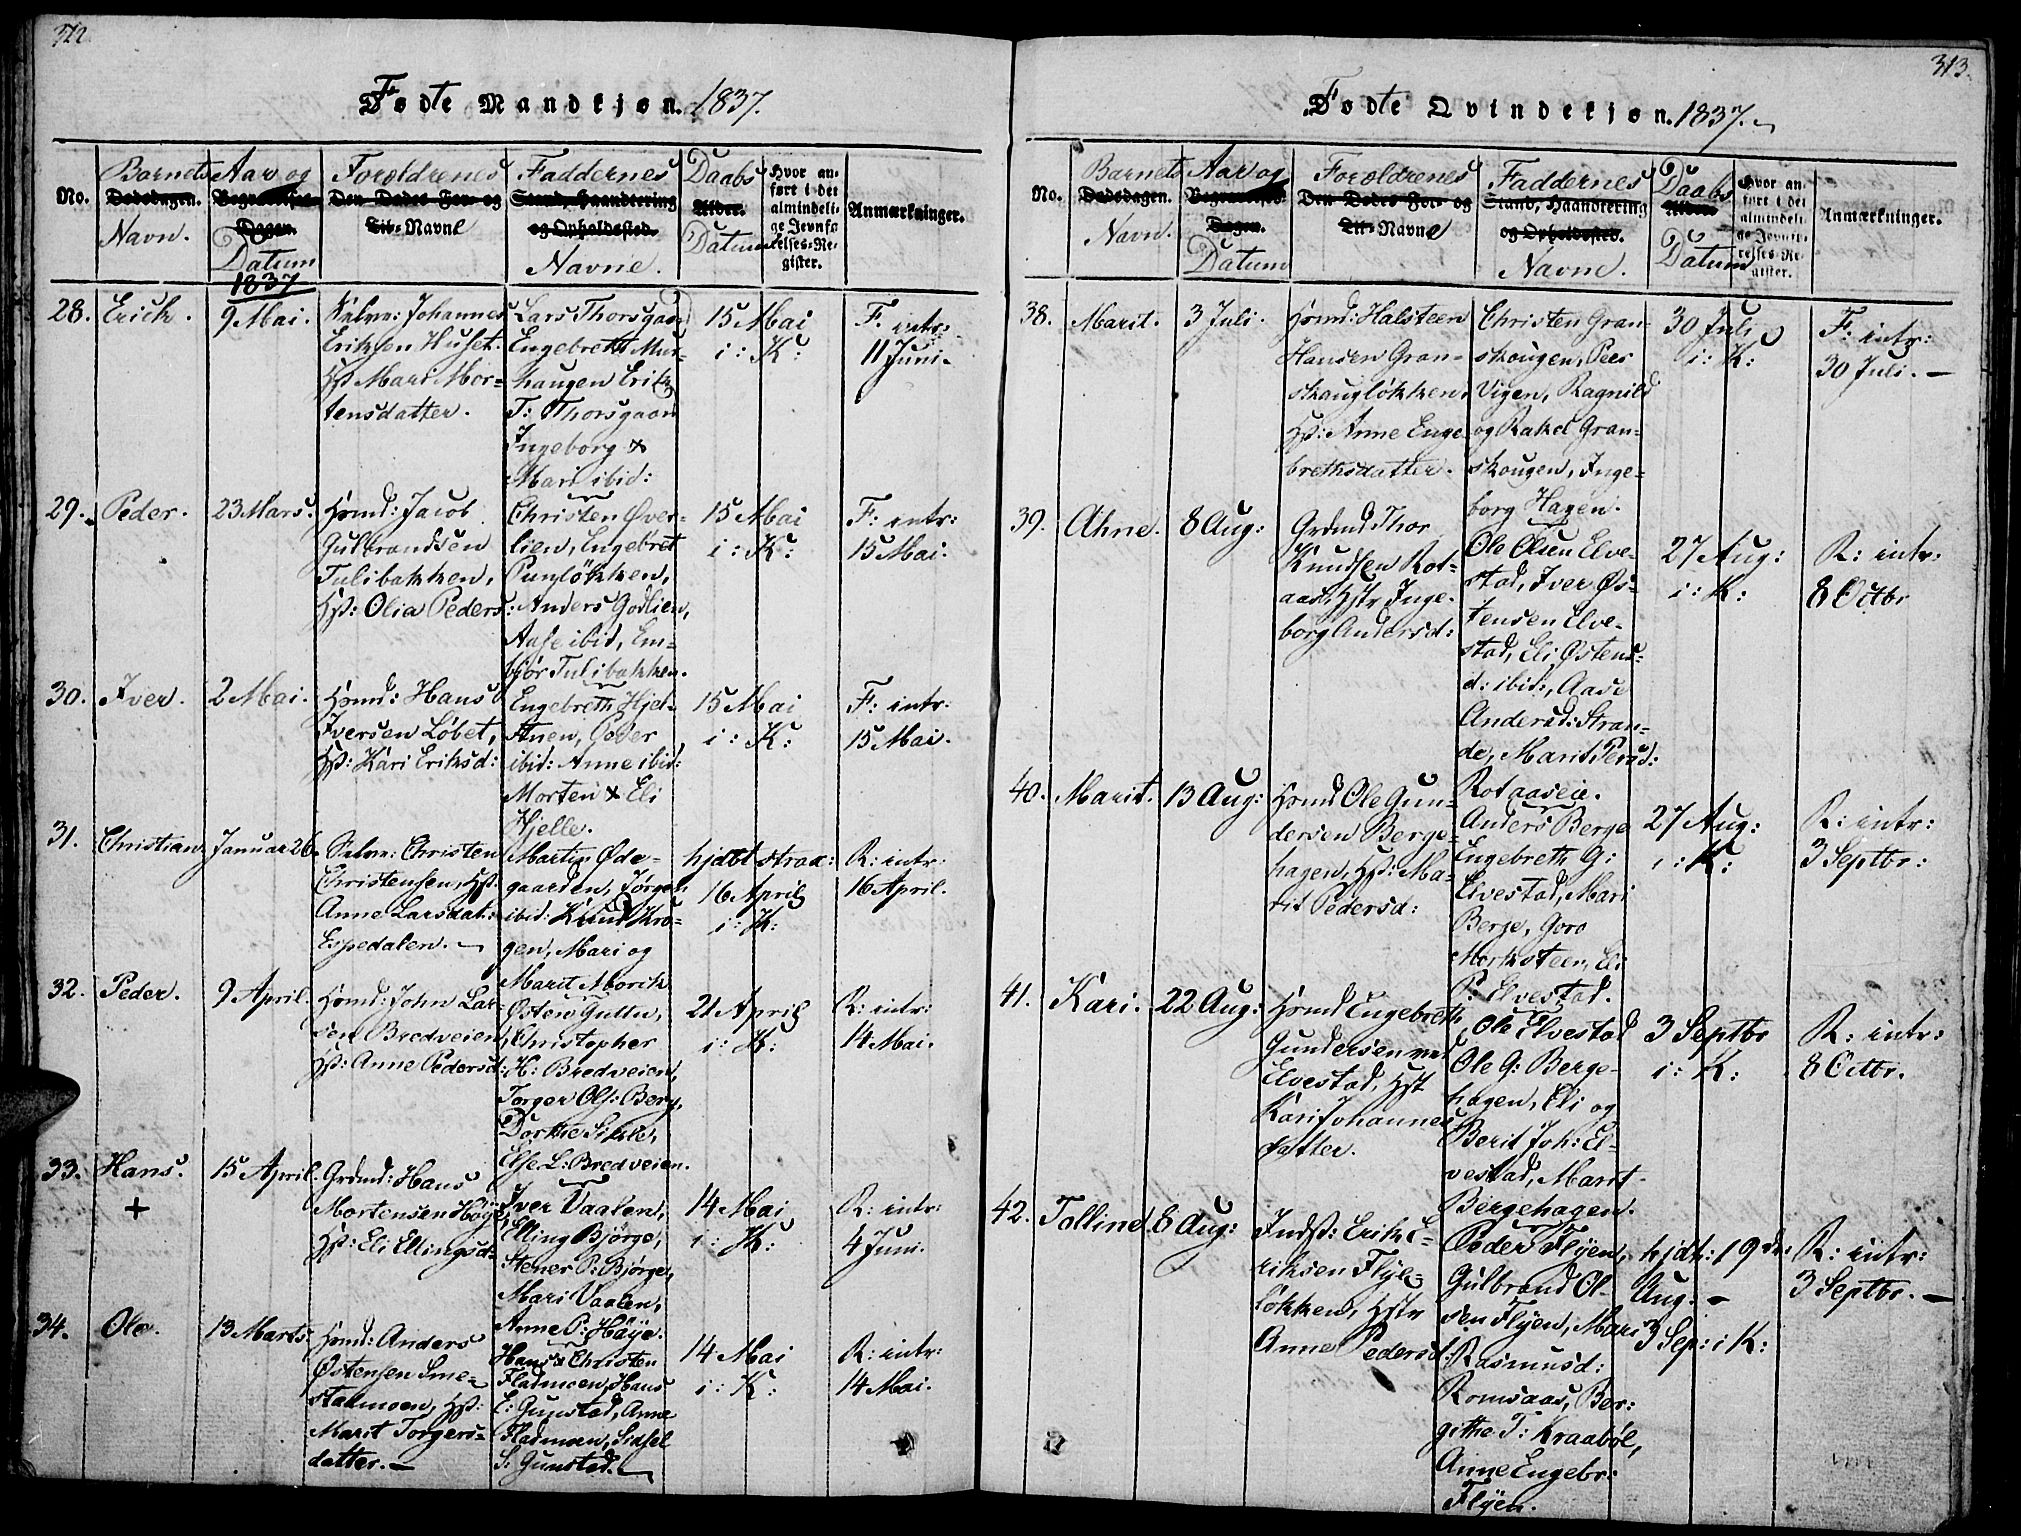 312.
Fødte Mandkjøn. 1837.
No.
Barnets
Dødsdagen.
Navn.
Aar og
Begravelses-
Dagen.
Datum
Forældrenes
Den Dødes For- og
Til-Navne
Faddernes
Stand, Haandtering
og Opholdssted.
Navne.
Daabs
Alder.
Datum
Hvor an-
ført i det
almindeli-
ge Jevnfø-
relses-Re-
gister.
Anmærkninger.
1837
28. Erich. 9 Mai.
Selve: Johannes
Eriksen Huset.
Hst Mari Mor-
tensdatter.
Lars Thorsgaar
Engebreth Mur-
haugen Erik
T: Thorsgaar
Ingeborg &
Mari ibid:
15 Mai
i: K:
F. intr:
11 Juni.
29. Peder. 23 Mars.
Hsmd: Jacob
Gulbrandsen
Tulibakken,
Hst: Olia Peders:
Christen Øver-
lien, Engebret
Punløkken,
Anders Godlien,
Aase ibid, Em-
bjør Tulibakken.
15 Mai
i: K:
F: intr:
15 Mai.
30. Iver. 2 Mai.
Hsmd: Hans
Iversen Løbet,
Hst: Kari Eriksd:
Engebreth Hjel-
stuen, Peder
ibid: Anne ibid:
Morten & Eli
Hjelle.
15 Mai
i: K:
F: intr:
15 Mai.
31. Christian. Januar 26.
Selve: Christen
Christensen, Hst.
Anne Larsdat:
Espedalen.
Martin Øde-
gaarden, Jørgen
ibid: Knud Kro-
gen, Mari og
Marit Morik
hjdbt strax:
16 April
i: K:
R: intr:
16 April.
32. Peder. 9 April.
Hsmd: John Lar-
sen Bredveien,
Hst: Anne Pedersd:
Østen Guttu,
Christopher
H: Bredveien,
Torger Ols: Berg,
Dorthe Sikle,
Else L: Bredveien.
21 April
i: K:
R: intr:
14 Mai.
33. Hans. 15 April.
+
Grdmd: Hans
Mortensen Høye
Hst: Eli Ellingsd:
Iver Vaalen,
Elling Bjørge,
Stener P: Bjørge,
Mari Vaalen,
Anne P: Høÿe.
14 Mai
i: K:
R: intr:
4 Juni.
34. Ole. 13 Marts:
Hsmd: Anders
Østensen Sme-
stadmoen, Hst:
Marit Torgers-
datter.
Hans & Christen
Fladmoen, Hans
E: Gunstad, Anne
Fladmoen, Sidsel
S: Gunstad.
14 Mai
i: K:
R: intr:
14 Mai.
313.
Fødte Qvindekjøn. 1837.
No.
Barnets
Dødsdagen.
Navn.
Aar og
Begravelses-
Dagen.
Datum
Forældrenes
Den Dødes For- og
Til-Navne
Faddernes
Stand, Haandtering
og Opholdssted.
Navne.
Daabs
Alder.
Datum
Hvor an-
ført i det
almindeli-
ge Jevnfø-
relses-Re-
gister.
Anmærkninger.
38. Marit. 3 Juli.
Hsmd: Halsteen
Hansen Gran-
skougløkken,
Hst: Anne Enge-
brethsdatter.
Christen Gran-
skougen, Peer
Vigen, Ragnild
og Rakel Gran-
skougen, Inge-
borg Hagen.
30 Juli
i: K:
F: intr:
30 Juli.
39. Ahne. 8 Aug:
Grdmd Thor
Knudsen Rot-
aas, Hstr Inge-
borg Andersd:
Ole Olsen Elve-
stad, Iver Øs-
tensen Elve-
stad, Eli Østens-
d: ibid:, Aase
Andersd: Stran-
de, Marit Persd:
Rotaaseie.
27 Aug:
i: K:
R: intr:
8 Octbr
40. Marit. 13 Aug:
Hsmd Ole Gun-
dersen Berge-
hagen, Hst: Ma-
rit Pedersd:
Anders Berge
Engebreth G:
Elvestad, Mari
Berge, Goro
Morksteen, Eli
P: Elvestad.
27 Aug:
i: K:
R: intr:
3 Septbr:
41. Kari. 22 Aug:
Hsmd Engebreth
Gundersen ved
Elvestad, Hst
Kari Johannes-
datter.
Ole Elvestad
Ole G: Berge-
hagen, Eli og
Berit Joh: El-
vestad, Marit
Bergehagen.
3 Septbr
i: K:
R: intr:
8 Octbr.
42. Tolline. 8 Aug:
Indst: Erik E-
riksen Flye-
løkken, Hstr
Anne Pedersd:
Peder Flyen,
Gulbrand Ol-
sen Flyen, Mari
Rasmusd:
Romsaas, Ber-
githe T: Kraabøl,
Anne Engebr:
Flÿen.
hjdt: 19de
Aug:
3 Sep: i K:
R: intr:
3 Septbr.